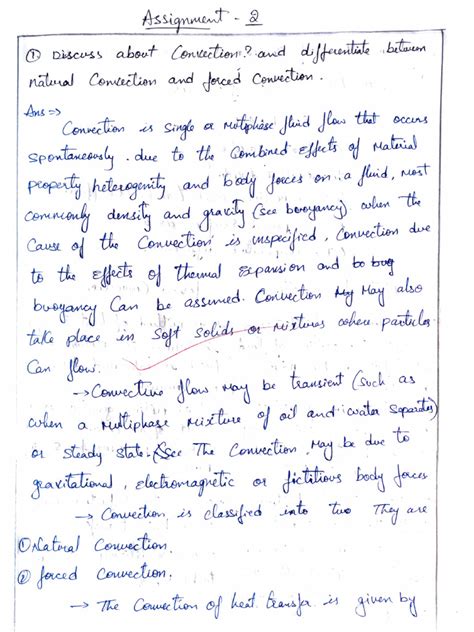 Assignment - 2
① Discuss about Convection? and differentiate between
natural Convection and forced Convection.
Ans =>
Convection is Single or Multiphase fluid flow that occurs
Spontaneously. due to the Combined Effects of Material
property heterogenity and body forces on a fluid, most
commonly density and gravity (see buoyancy) when the
Cause of the Convection is unspecified, Convection due
to the Effects of thermal Expansion and
buoyancy Can be assumed. Convection May also
take place in Soft Solids or Mixtures where particles
Can flow.
→ Convective flow May be transient (Such as
when a Multiphase Mixture of oil and water Separates)
or Steady state. See The Convection May be due to
gravitational, Electromagnetic or fictitious body forces
→ Convection is classified into two They are
① Natural Convection.
② forced Convection.
→ The Convection of heat transfer is given by